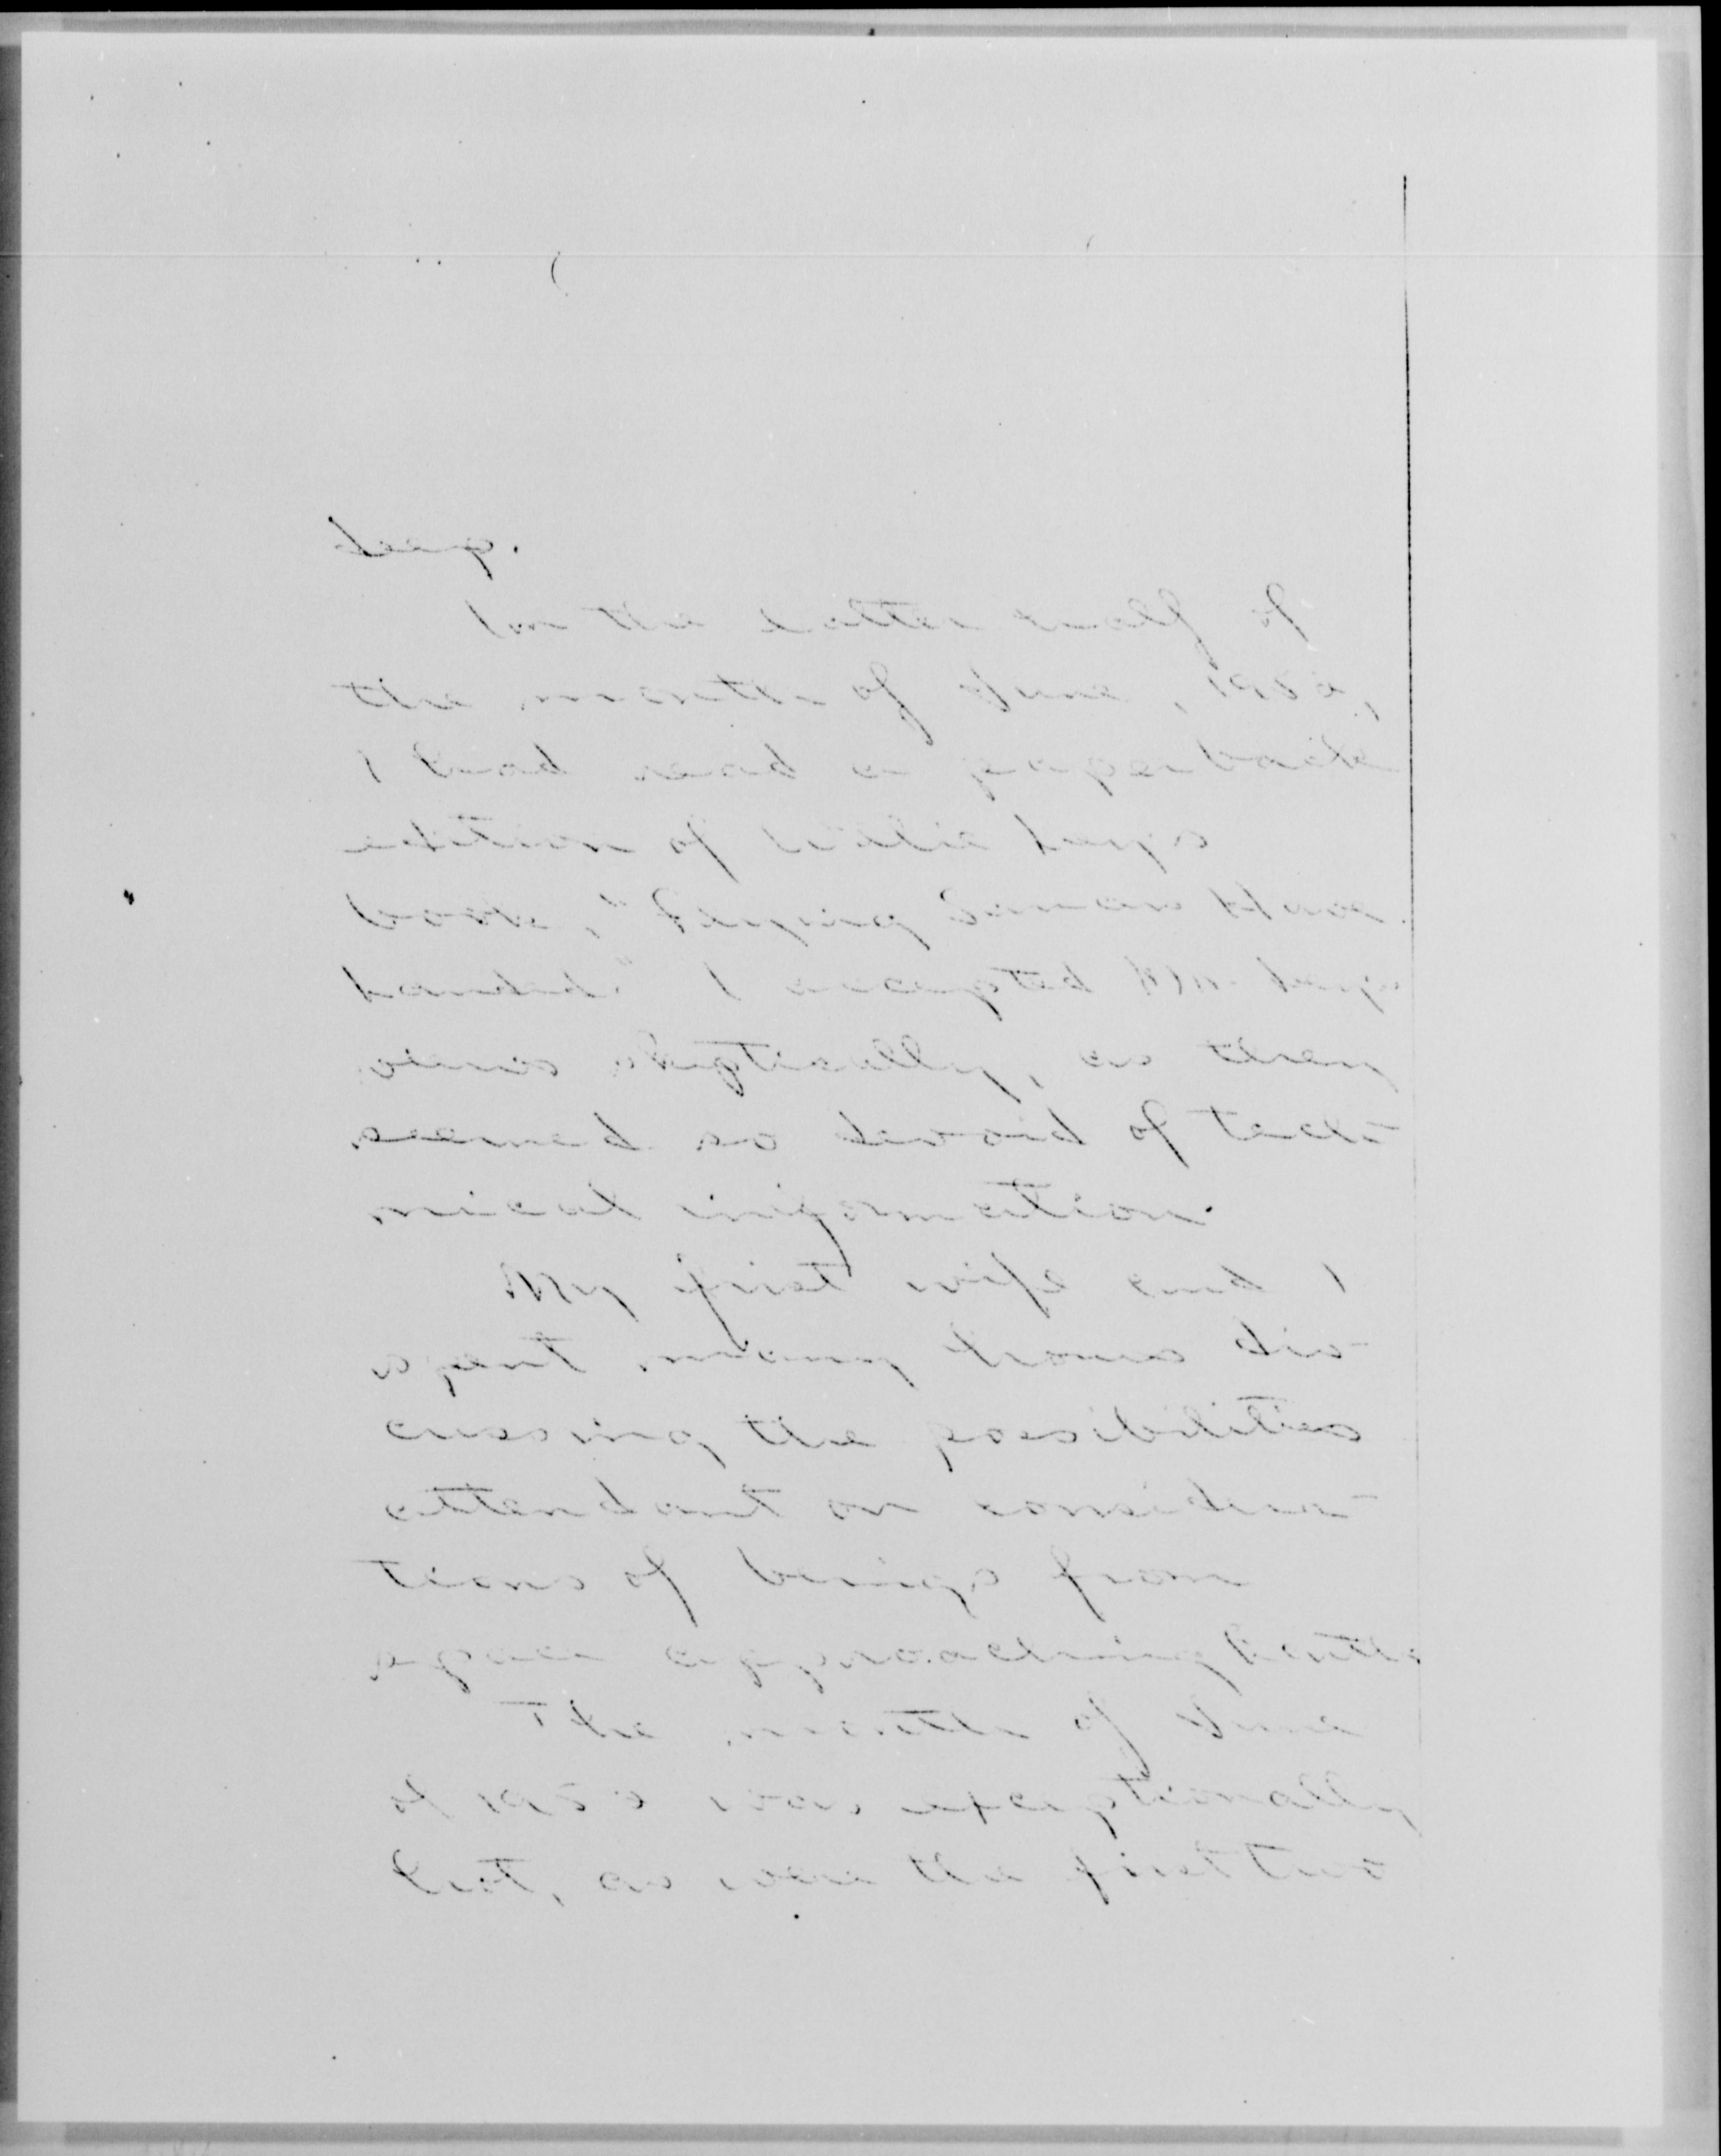 deep.
In the latter half of
the month of June,
I had read a paperback
edition of
book, "Flying Saucers Have
Landed." I accepted
views skeptically, as they
seemed so devoid of tech-
nical information.
My first wife and I
spent many hours dis-
cussing the possibilities
attendant on considera-
tions of beings from
space approaching Earth.
The month of June
of was exceptionally
hot, as were the first two